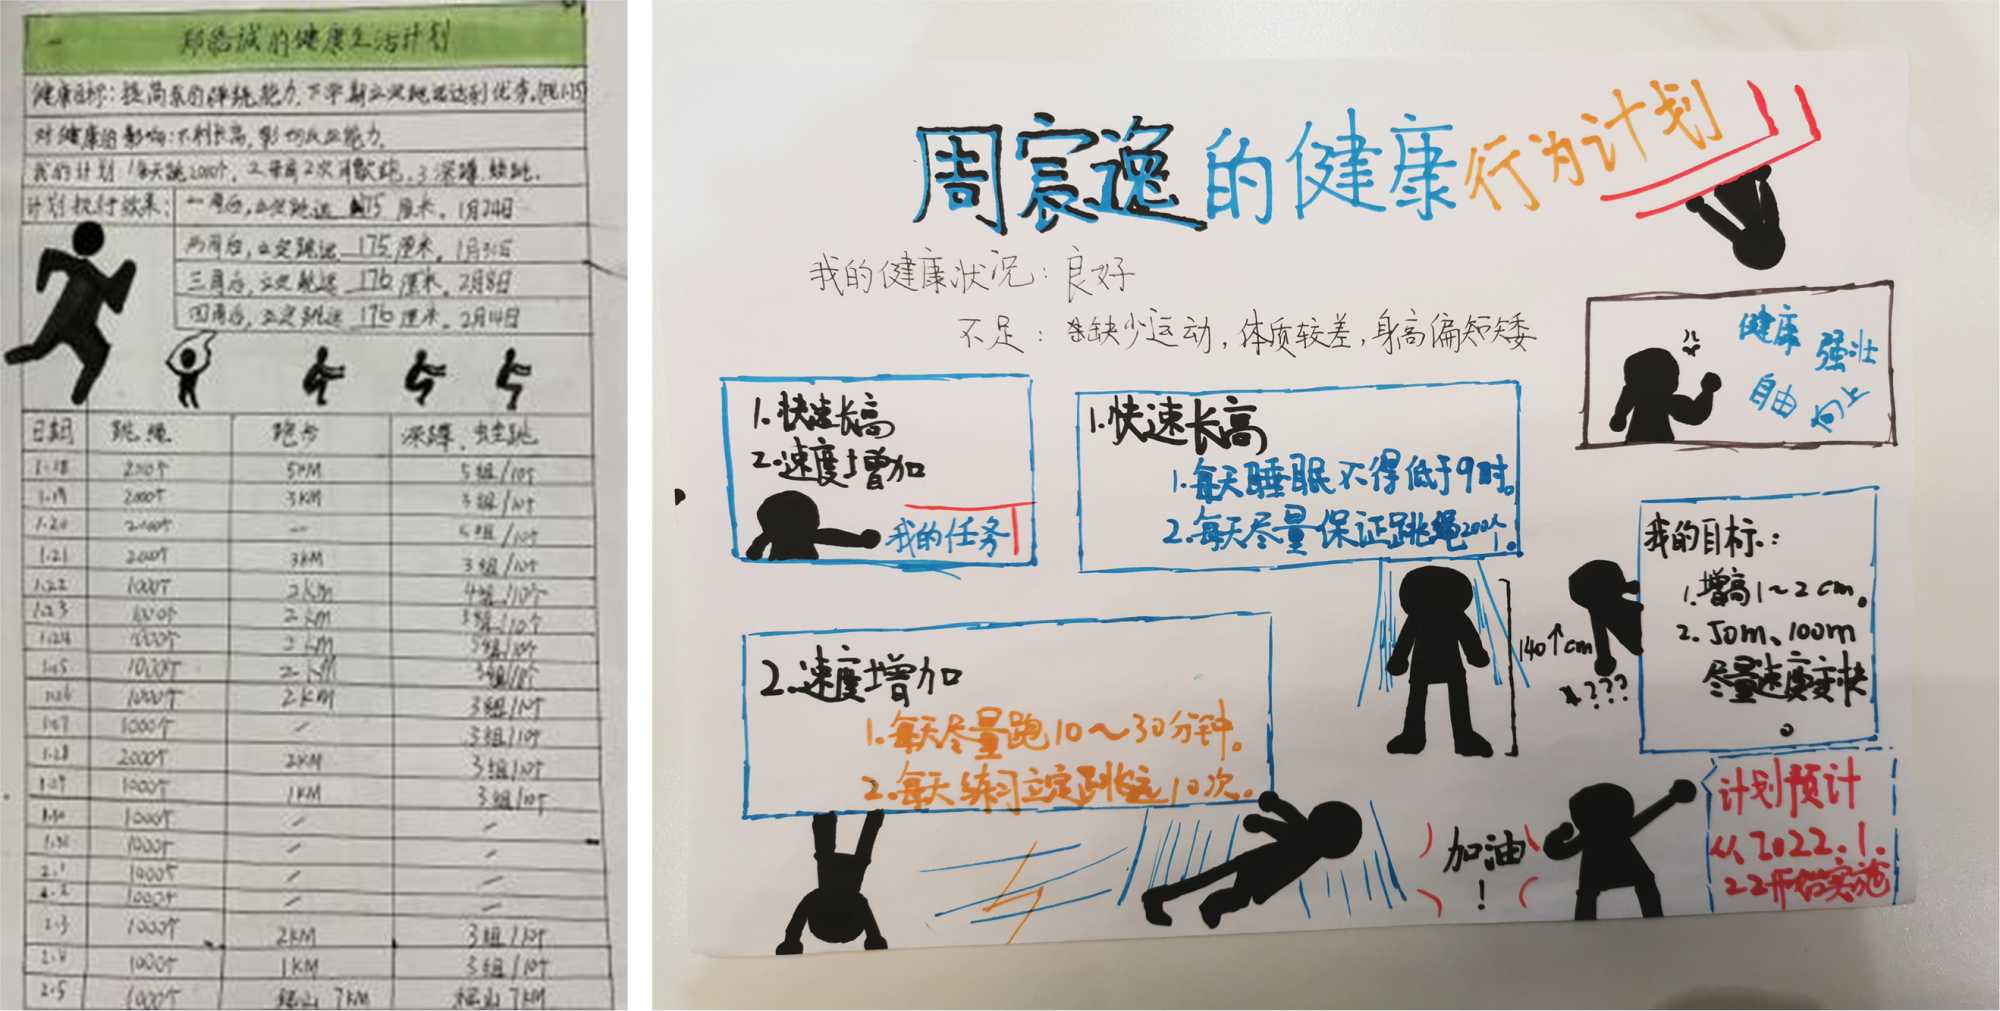 郑浩诚的健康生活计划
健康目标:提高我的弹跳能力.下学期立定跳远达到优秀.
对健康的影响:不利长高,影响反应能力.
我的计划:1每天跳2000个.2.每周2次有氧跑.3深蹲.蛙跳.
计划执行效果:
一周后,立定跳远 175 厘米.1月24日
两周后,立定跳远 175 厘米.1月31日
三周后,立定跳远 176 厘米.2月8日
四周后,立定跳远 176 厘米.2月14日
日期 跳绳 跑步 深蹲.蛙跳
1.18 2000个 5KM 5组/10个
1.19 2000个 3KM 3组/10个
1.20 2000个 — 5组/10个
1.21 2000个 3KM 3组/10个
1.22 1000个 2km 4组/10个
1.23 1000个 2km 3组/10个
1.24 1000个 2km 5组/10个
1.25 1000个 2KM 3组/10个
1.26 1000个 2KM 3组/10个
1.27 1000个 / 3组/10个
1.28 2000个 2KM 3组/10个
1.29 1000个 1KM 3组/10个
1.30 1000个 / /
1.31 1000个 / /
2.1 1000个 / /
2.2 1000个 / /
2.3 1000个 2KM 3组/10个
2.4 1000个 1KM 3组/10个
2.5 1000个 爬山7KM 爬山7KM
周宸逸的健康行为计划
我的健康状况:良好
不足:缺少运动,体质较差,身高偏矮
健康 强壮
自由 向上
1.快速长高
2.速度增加
我的任务
1.快速长高
1.每天睡眠不得低于9时。
2.每天尽量保证跳绳200个。
我的目标:
1.增高1~2cm。
2.50m、100m
尽量速度变快
。
140↑cm
???
2.速度增加
1.每天尽量跑10~30分钟。
2.每天练习立定跳远10次。
加油
!
计划预计
从2022.1.
22开始实施